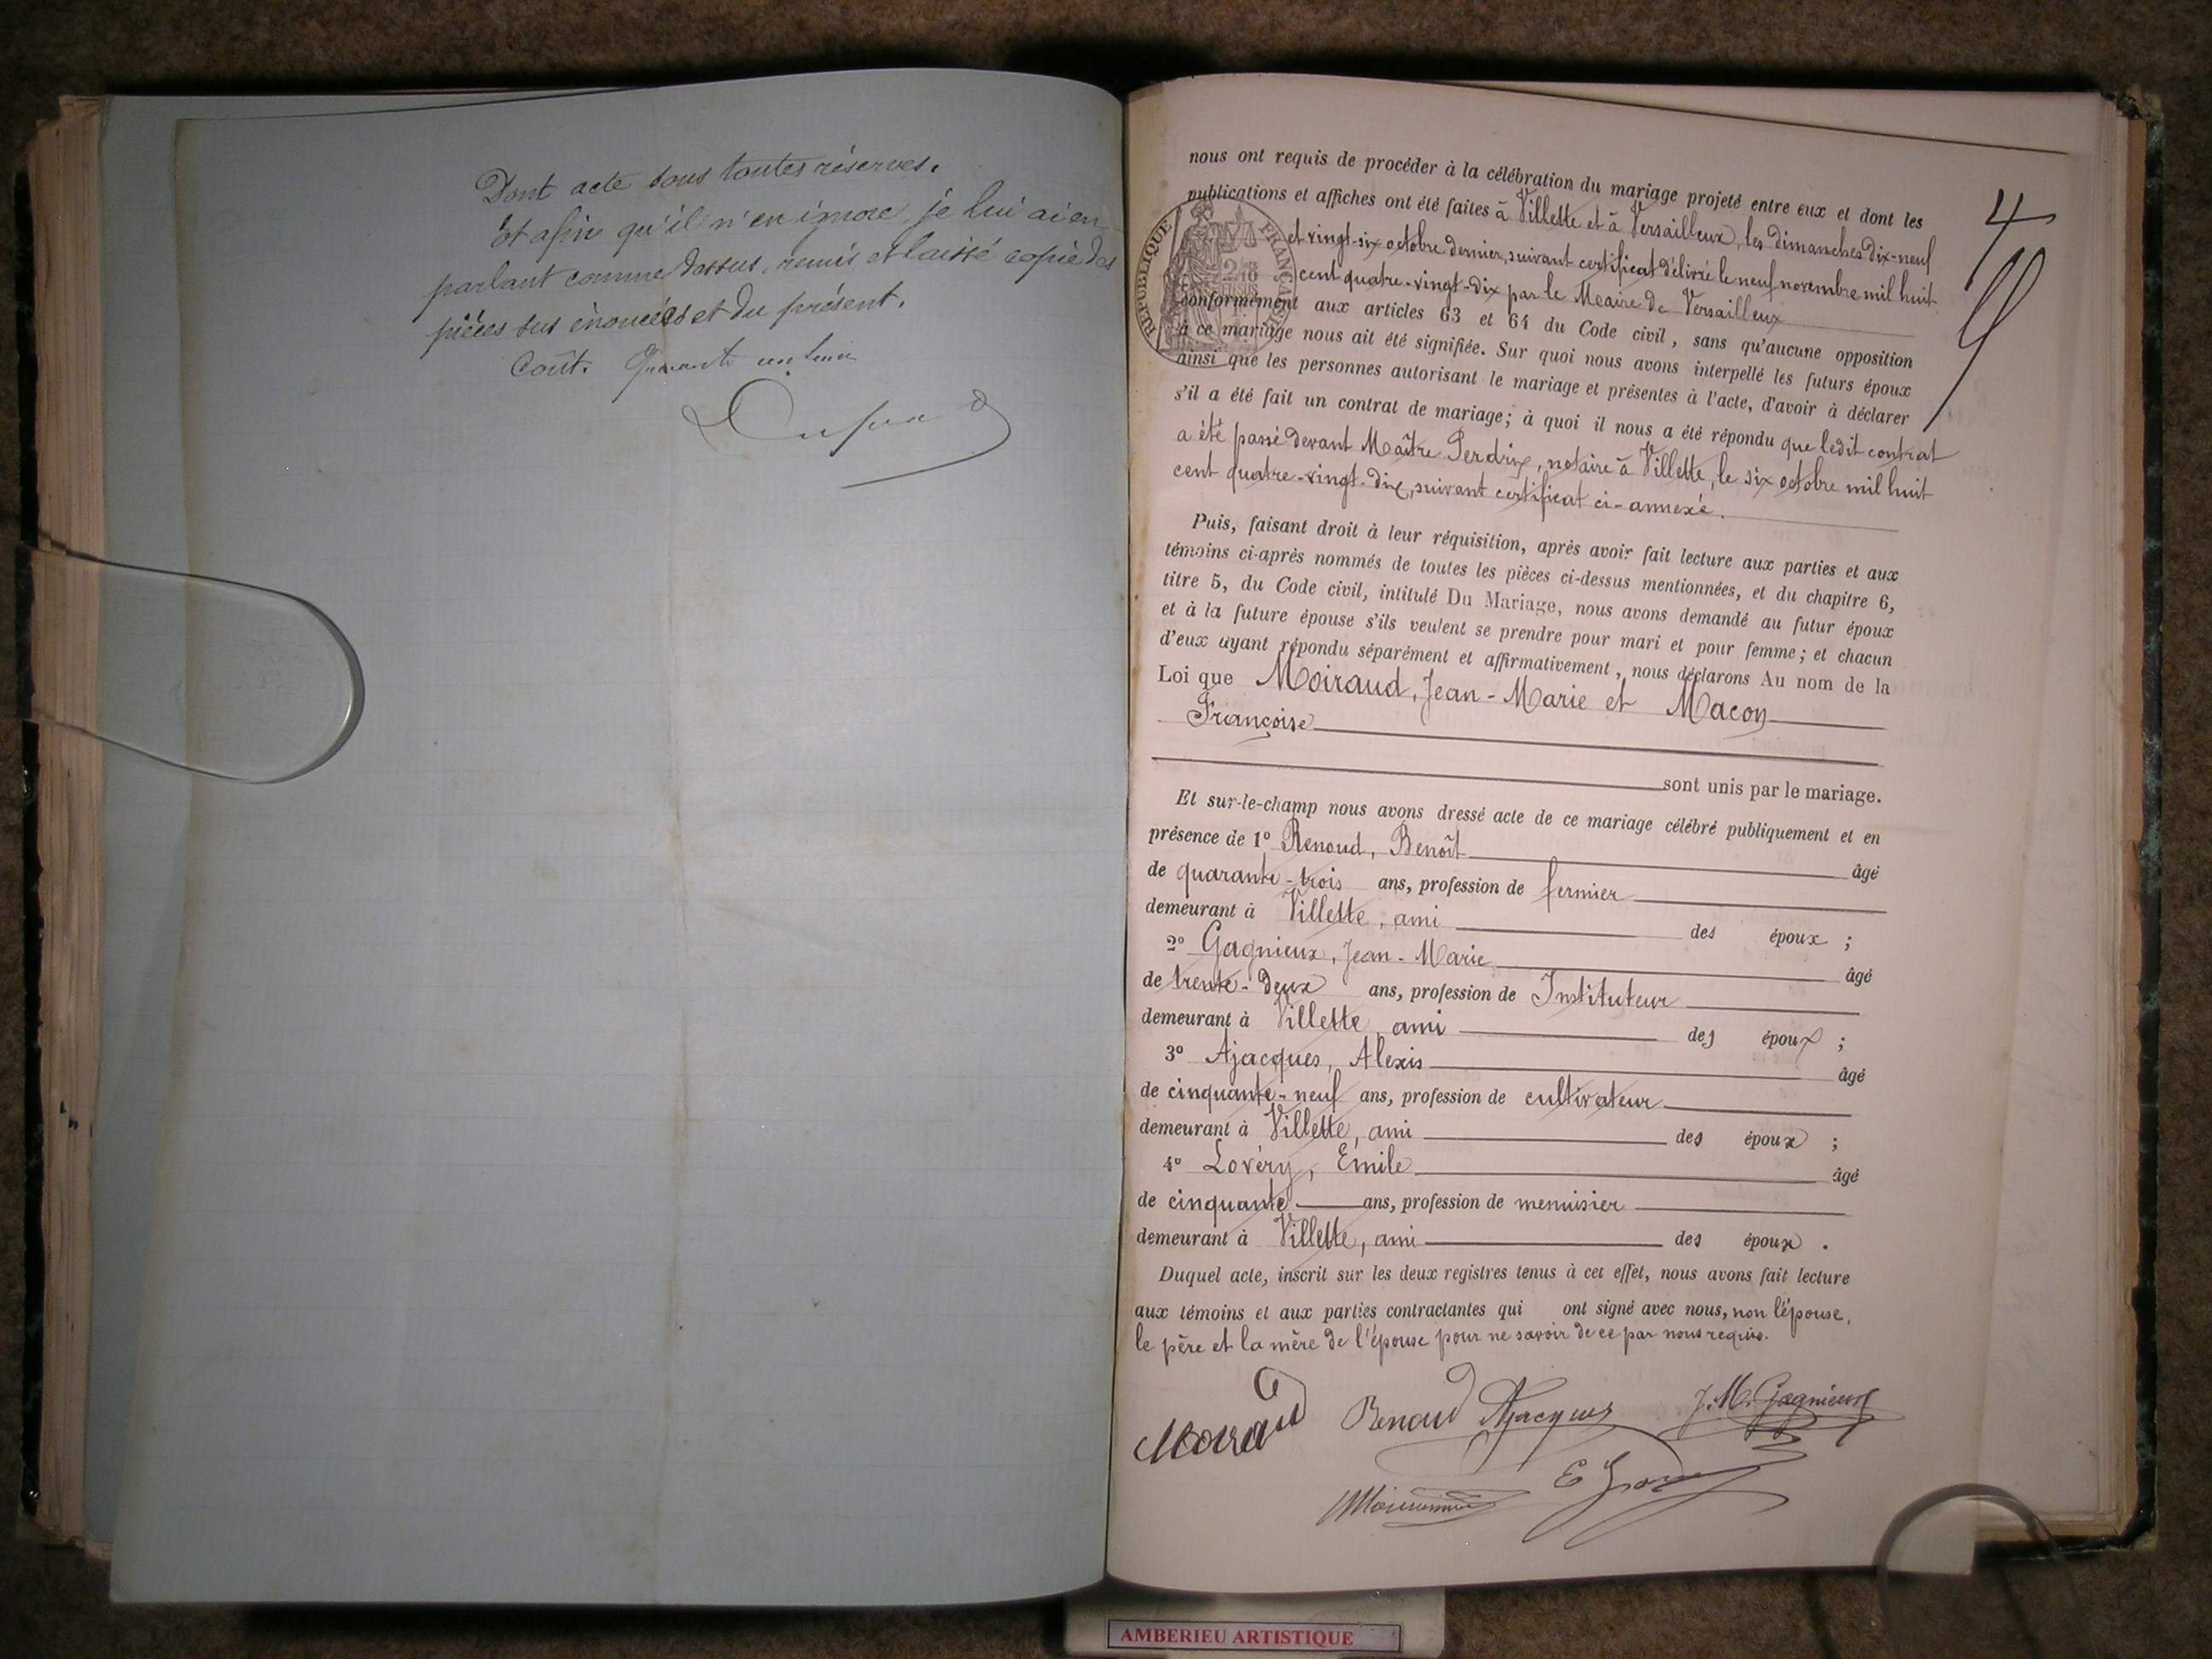 Dont acte sous toutes réserves.
Et afin qu'il n'en ignore je lui ai en
parlant comme dessus, remis et laissé copie des
pièces sus énoncées et du présent.
Coût.
nous ont requis de procéder à la célébration du mariage projeté entre eux et dont les
publications et affiches ont été faites à Villette et à Versailleux, les dimanches dix-neuf
et vingt-six octobre dernier, suivant certificat délivré le neuf novembre mil huit
cent quatre-vingt-dix par le Maire de Versailleux
conformément aux articles 63 et 64 du Code civil, sans qu'aucune opposition
à ce mariage nous ait été signifiée. Sur quoi nous avons interpellé les futurs époux
ainsi que les personnes autorisant le mariage et présentes à l'acte, d'avoir à déclarer
s'il a été fait un contrat de mariage; à quoi il nous a été répondu que ledit contrat
a été passé devant Maître Perdrix, notaire à Villette, le six octobre mil huit
cent quatre-vingt-dix, suivant certificat ci-annexé.
Puis, faisant droit à leur réquisition, après avoir fait lecture aux parties et aux
témoins ci-après nommés de toutes les pièces ci-dessus mentionnées, et du chapitre 6,
titre 5, du Code civil, intitulé Du Mariage, nous avons demandé au futur époux
et à la future épouse s'ils veulent se prendre pour mari et pour femme; et chacun
d'eux ayant répondu séparément et affirmativement, nous déclarons Au nom de la
Loi que Moiraud, Jean-Marie et Macon
Françoise
sont unis par le mariage.
Et sur-le-champ nous avons dressé acte de ce mariage célébré publiquement et en
présence de 1º Renoud, Benoît âgé
de quarante-trois ans, profession de fermier
demeurant à Villette, ami des époux ;
2º Gagnieux, Jean-Marie âgé
de trente-deux ans, profession de Instituteur
demeurant à Villette, ami des époux ;
3º Ajacques, Alexis âgé
de cinquante-neuf ans, profession de cultivateur
demeurant à Villette, ami des époux ;
4º Lovéry, Émile âgé
de cinquante ans, profession de menuisier
demeurant à Villette, ami des époux .
Duquel acte, inscrit sur les deux registres tenus à cet effet, nous avons fait lecture
aux témoins et aux parties contractantes qui ont signé avec nous, non l'épouse,
le père et la mère de l'épouse pour ne savoir de ce par nous requis.
Moiraud Renoud Ajacques J. M. Gagnieux
RÉPUBLIQUE FRANÇAISE
AMBERIEU ARTISTIQUE